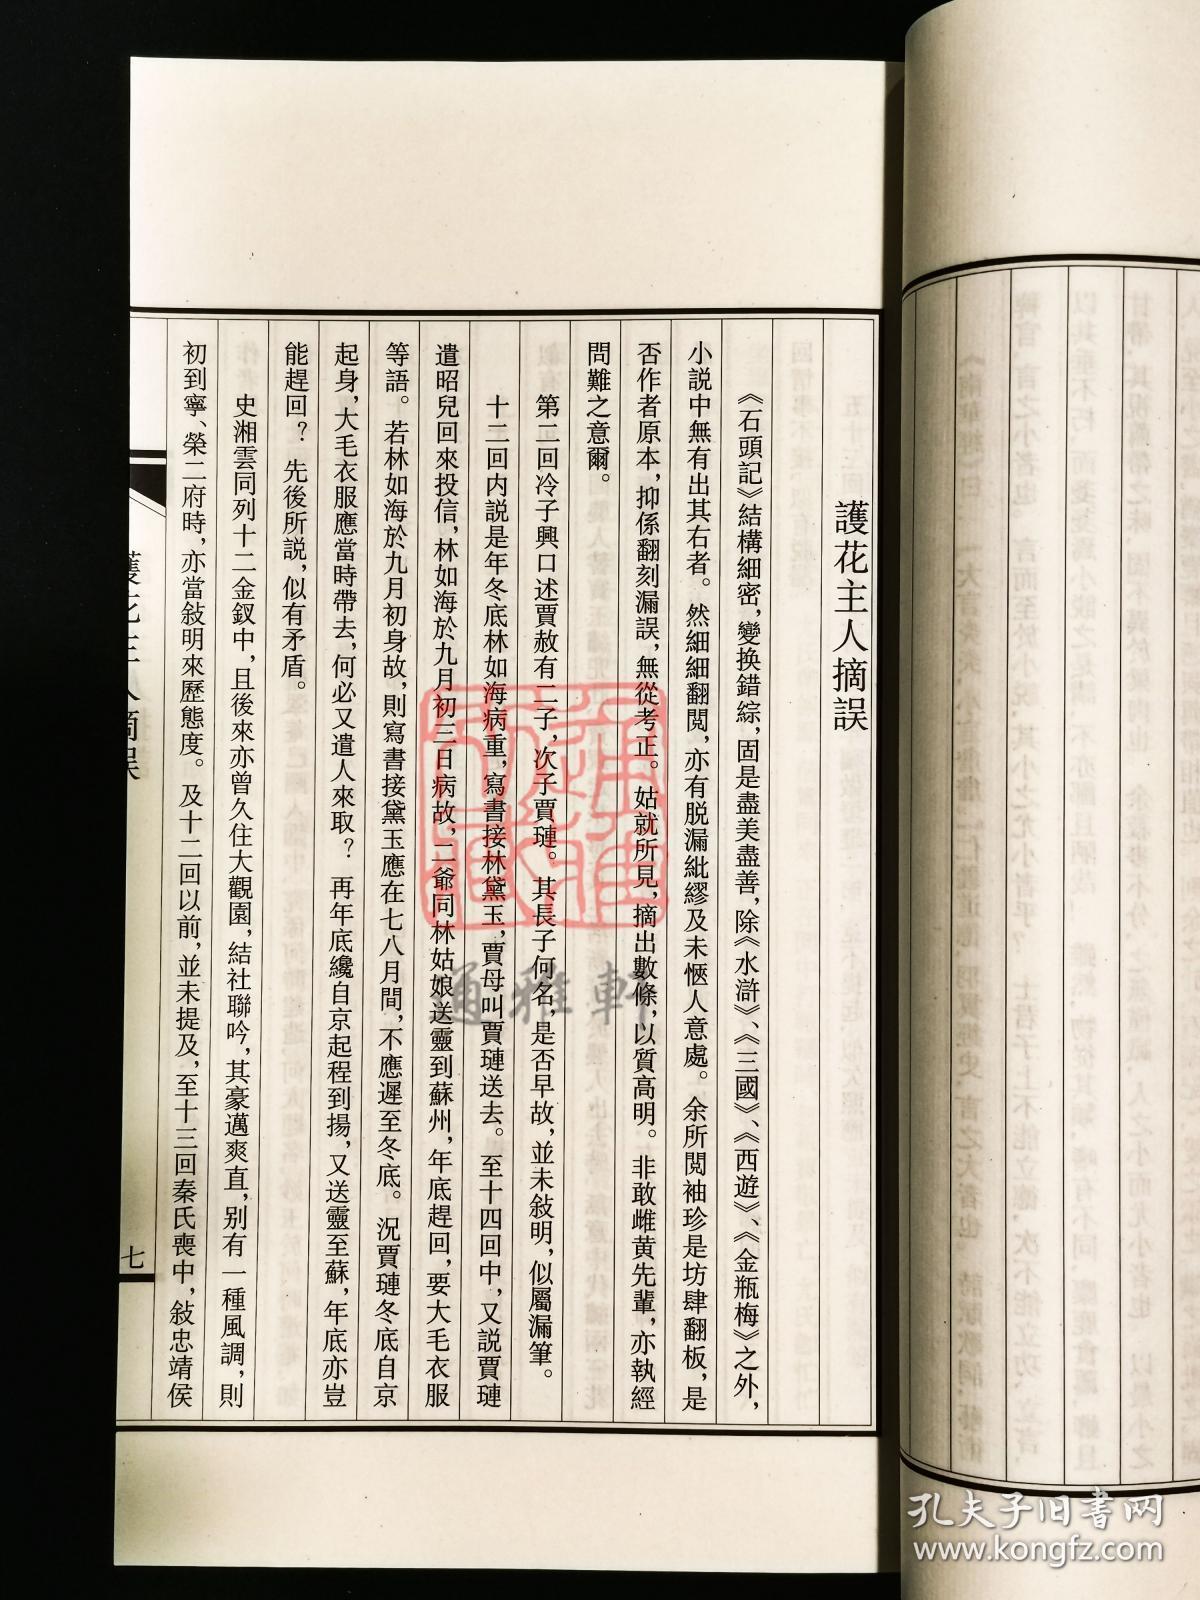 護花主人摘誤
《石頭記》結構細密，變換錯綜，固是盡美盡善，除《水滸》、《三國》、《西遊》、《金瓶梅》之外，
小説中無有出其右者。然細細翻閲，亦有脱漏紕繆及未愜人意處。余所閲袖珍是坊肆翻板，是
否作者原本，抑係翻刻漏誤，無從考正。姑就所見，摘出數條，以質高明。非敢雌黄先輩，亦執經
問難之意爾。
第二回冷子興口述賈赦有二子，次子賈璉。其長子何名，是否早故，並未敍明，似屬漏筆。
十二回内説是年冬底林如海病重，寫書接林黛玉，賈母叫賈璉送去。至十四回中，又説賈璉
遣昭兒回來投信，林如海於九月初三日病故，二爺同林姑娘送靈到蘇州，年底趕回，要大毛衣服
等語。若林如海於九月初身故，則寫書接黛玉應在七八月間，不應遲至冬底。況賈璉冬底自京
起身，大毛衣服應當時帶去，何必又遣人來取？再年底纔自京起程到揚，又送靈至蘇，年底亦豈
能趕回？先後所説，似有矛盾。
史湘雲同列十二金釵中，且後來亦曾久住大觀園，結社聯吟，其豪邁爽直，别有一種風調，則
初到寧、榮二府時，亦當敍明來歷態度。及十二回以前，並未提及，至十三回秦氏喪中，敍忠靖侯
護花主人摘誤
七
通雅軒
孔夫子旧书网
www.kongfz.com